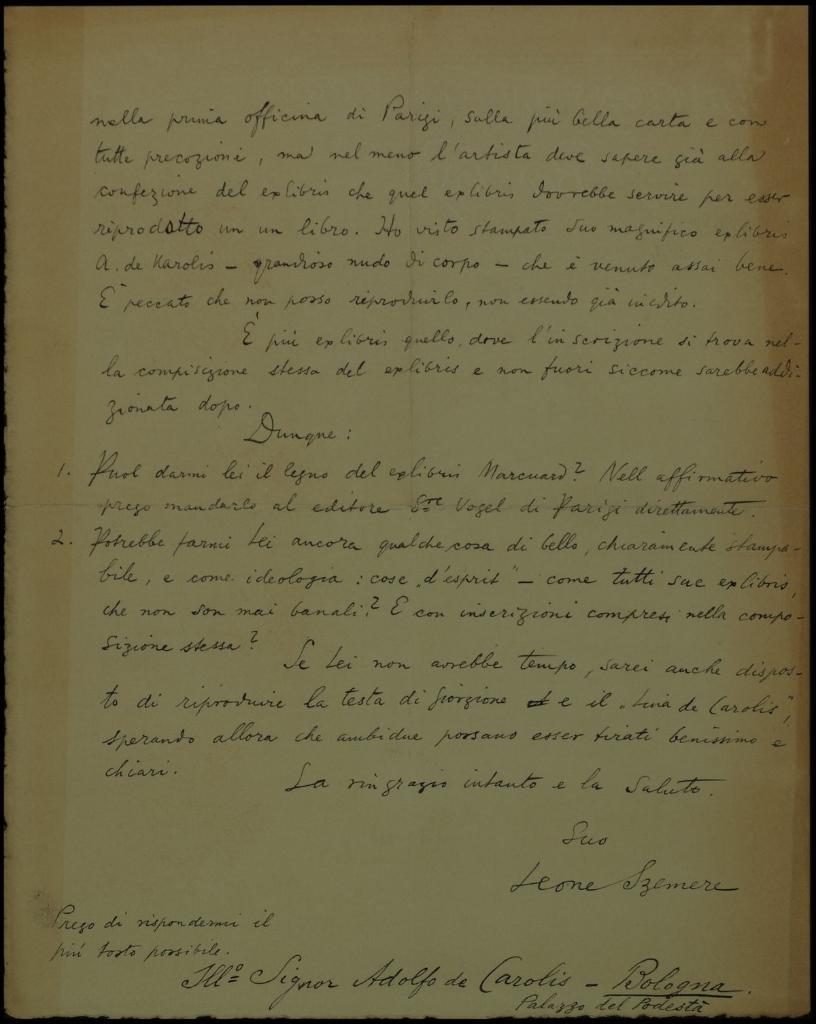 nella prima officina di Parigi, sulla più bella carta e con
tutte precozioni, ma nel meno l'artista deve sapere già alla
confezione del exlibris che quel exlibris dovrebbe servire per esser
riprodotto un un libro. Ho visto stampato suo magnifico exlibris
A. de Karolis – grandioso nudo di corpo – che è venuto assai bene.
È peccato che non posso riprodurlo, non essendo già inedito.
È più exlibris quello, dove l'inscrizione si trova nel-
la compisizione stessa del exlibris e non fuori siccome sarebbe addi-
zionata dopo.
Dunque:
1. Puol darmi lei il legno del exlibris Marcuard? Nell affirmativo
prego mandarlo al editore Sre Vogel di Parigi direttamente.
2. Potrebbe farmi Lei ancora qualche cosa di bello, chiaramente stampa-
bile, e come ideologia: cose „d'esprit" – come tutti sue exlibris,
che non son mai banali? E con inscrizioni compresi nella compo-
sizione stessa?
Se Lei non avrebbe tempo, sarei anche dispos-
to di riprodurre la testa di Giorgione e il „Lina de Carolis",
sperando allora che ambidue possano esser tirati benissimo e
chiari.
La ringrazio intanto e la saluto.
Suo
Leone Szemere
Prego di rispondermi il
più tosto possibile.
Illo Signor Adolfo de Carolis – Bologna.
Palazzo del Podestà